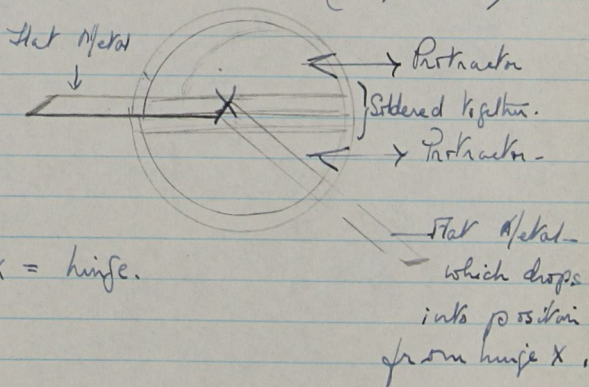 Flat Metal
Protractor
Soldered together.
Protractor -
X
Flat Metal -
which drops
into position
from hinge X.
X = hinge.